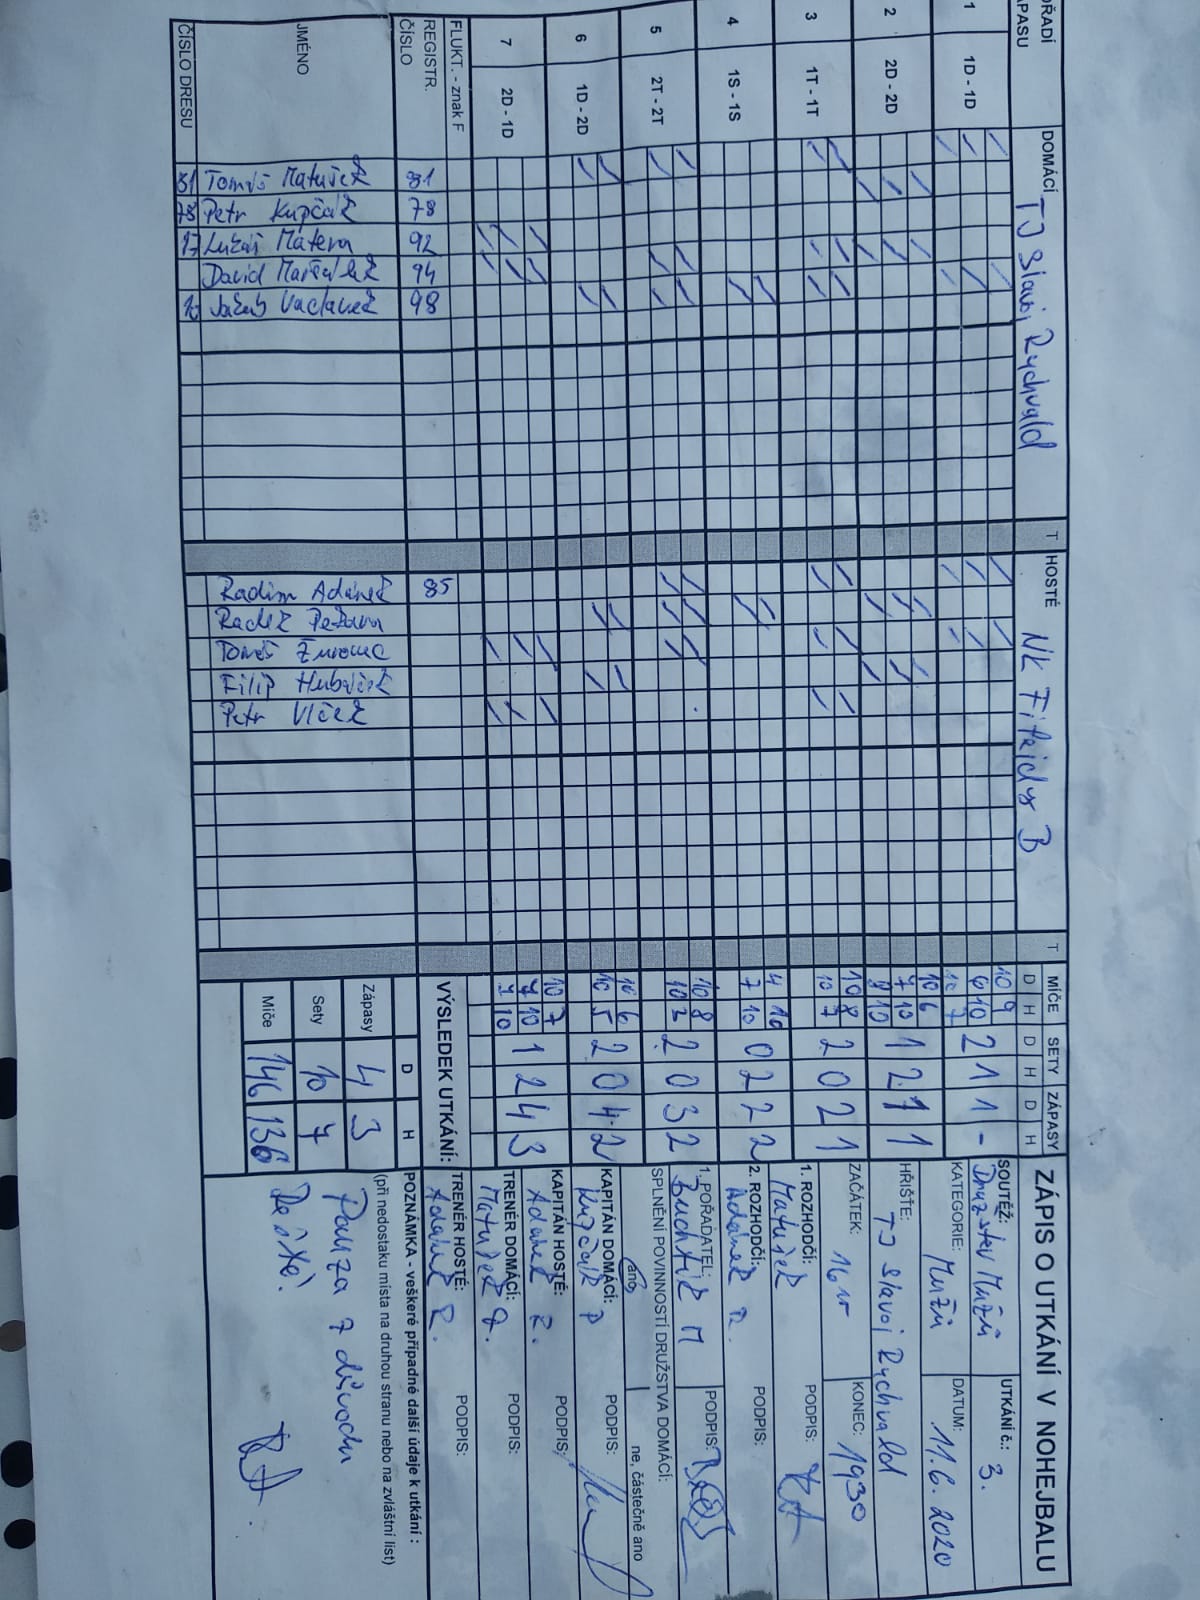 ZÁPIS O UTKÁNÍ V NOHEJBALU
SOUTĚŽ: Družstev Mužů UTKÁNÍ č.: 3.
KATEGORIE: Muži DATUM: 11.6.2020
HŘIŠTĚ: TJ Slavoj Rychvald
ZAČÁTEK: 16 KONEC: 1930
1. ROZHODČÍ: Matušek PODPIS:
2. ROZHODČÍ: Adámek R. PODPIS:
1. POŘADATEL: Buchtík M PODPIS:
SPLNĚNÍ POVINNOSTÍ DRUŽSTVA DOMÁCÍ:
ano, ne, částečně ano
KAPITÁN DOMÁCÍ: Kupčák P PODPIS:
KAPITÁN HOSTÉ: Adámek R. PODPIS:
TRENÉR DOMÁCÍ: Matušek PODPIS:
TRENÉR HOSTÉ: Adámek R. PODPIS:
POZNÁMKA - veškeré případné další údaje k utkání :
(při nedostaku místa na druhou stranu nebo na zvláštní list)
Pauza z důvodu
Deště.
POŘADÍ ZÁPASU DOMÁCÍ TJ Slavoj Rychvald T HOSTÉ NK Fitkidy B T MÍČE SETY ZÁPASY
D H D H D H
1 1D - 1D 10 9 2 1 1 -
6 10
10 7
2 2D - 2D 10 6 1 2 1 1
7 10
8 10
3 1T - 1T 10 8 2 0 2 1
10 7
4 1S - 1S 4 10 0 2 2 2
7 10
5 2T - 2T 10 8 2 0 3 2
10 3
6 1D - 2D 10 6 2 0 4 2
10 5
7 2D - 1D 10 7 1 2 4 3
7 10
7 10
FLUKT. - znak F
REGISTR. ČÍSLO
JMÉNO
ČÍSLO DRESU
81 Tomáš Matušek 81
78 Petr Kupčák 78
17 Lukáš Matera 92
David Maršálek 94
Jakub Vaclavek 98
Radim Adámek 85
Radek Pekara
Tomáš
Filip Hubáček
Petr Vlček
VÝSLEDEK UTKÁNÍ:
D H
Zápasy 4 3
Sety 10 7
Míče 146 136